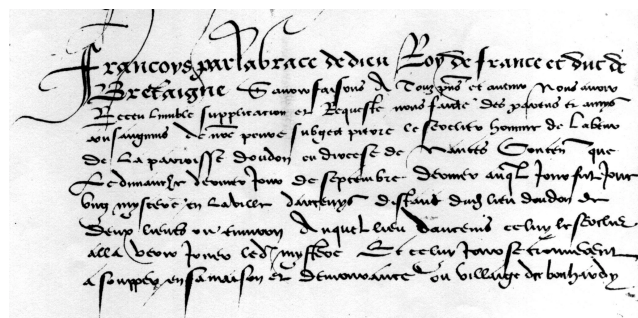 Francoys par la grace de dieu Roy de france et duc de
Bretaigne Savoir faisons A Tous pns et avenir Nous avoir
Receu lumble supplication et Requeste nous faicte des parens et amys
consanguins de nre povre subgect pierre le homme de labeur
de la parroisse doudon ou diocese de Nantes Conten que
Le dimanche dernier jour de septembre dernier auql jour fut joue
ung mystere en la ville dancenys distand dud lieu doudon de
deux lieues ou environ Auquel lieu dancenis celuy
alla veoir jouer led mystere Et celuy jour se trouverent
a soupper en sa maison et demourance ou villaige de